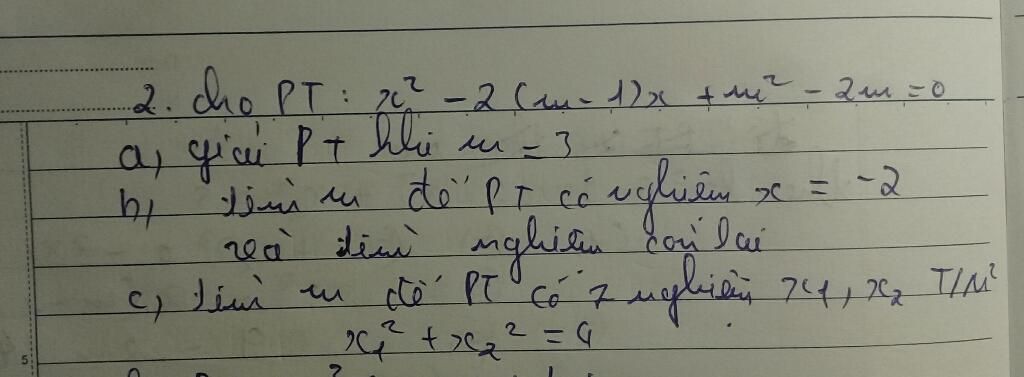 2. cho PT: x² - 2(m-1)x + m² - 2m = 0
a, giải PT khi m = 3
b, tìm m để PT có nghiệm x = -2
và tìm nghiệm còn lại
c, tìm m để PT có 2 nghiệm x₁, x₂ T/M²
x₁² + x₂² = 4
5